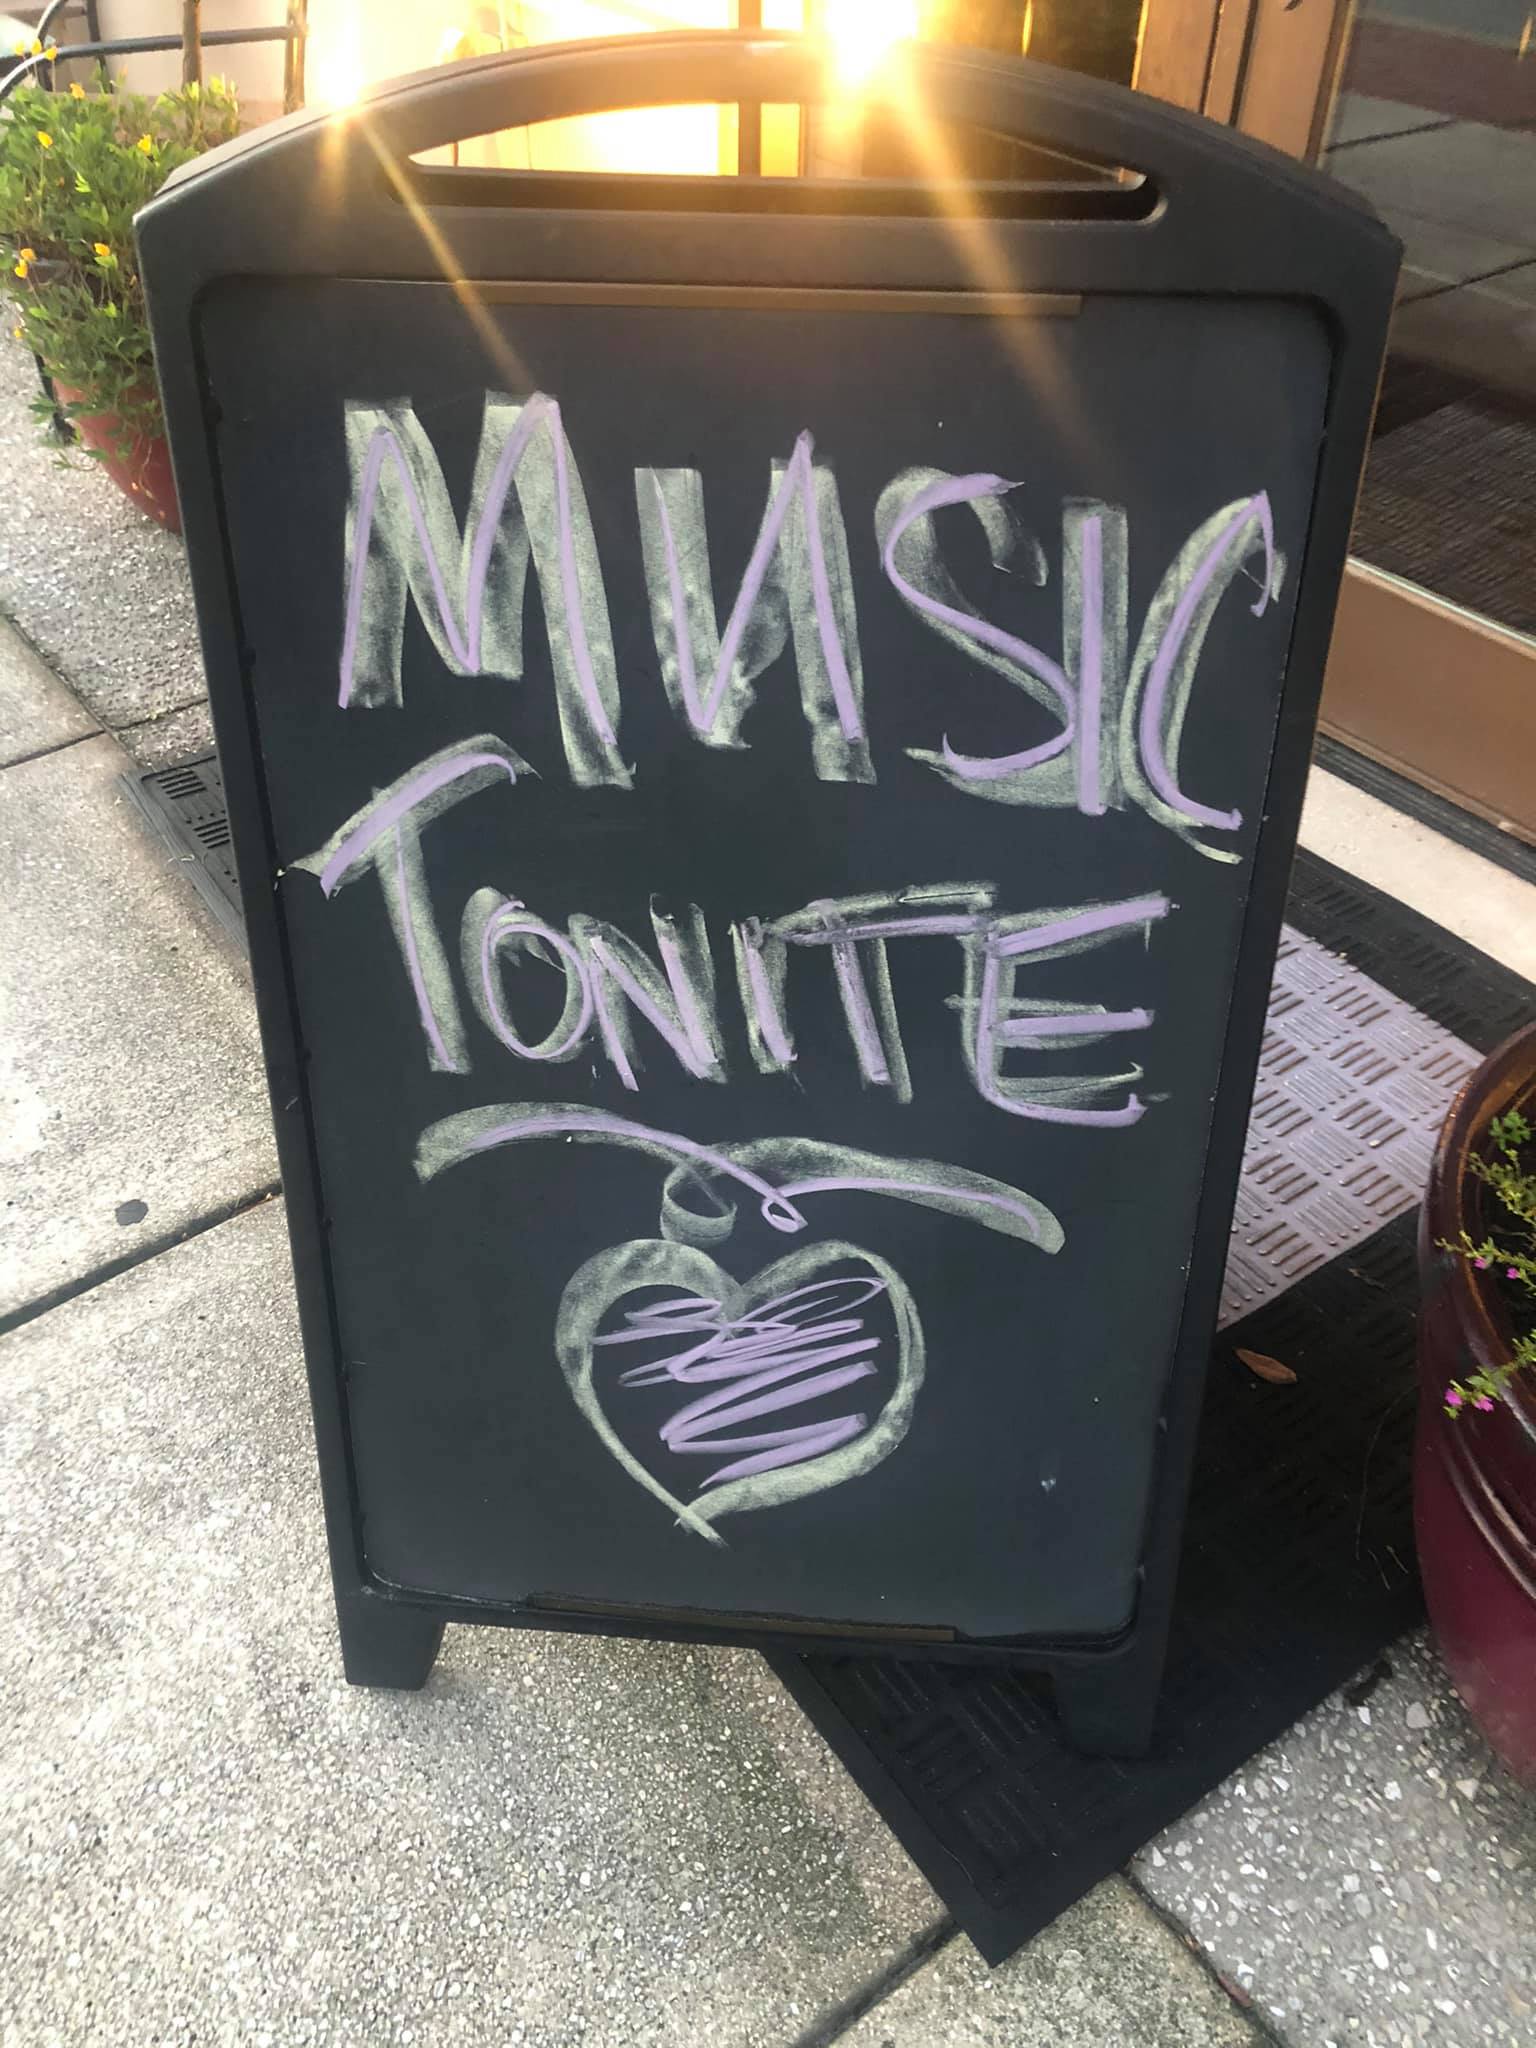 MUSIC
TONITE